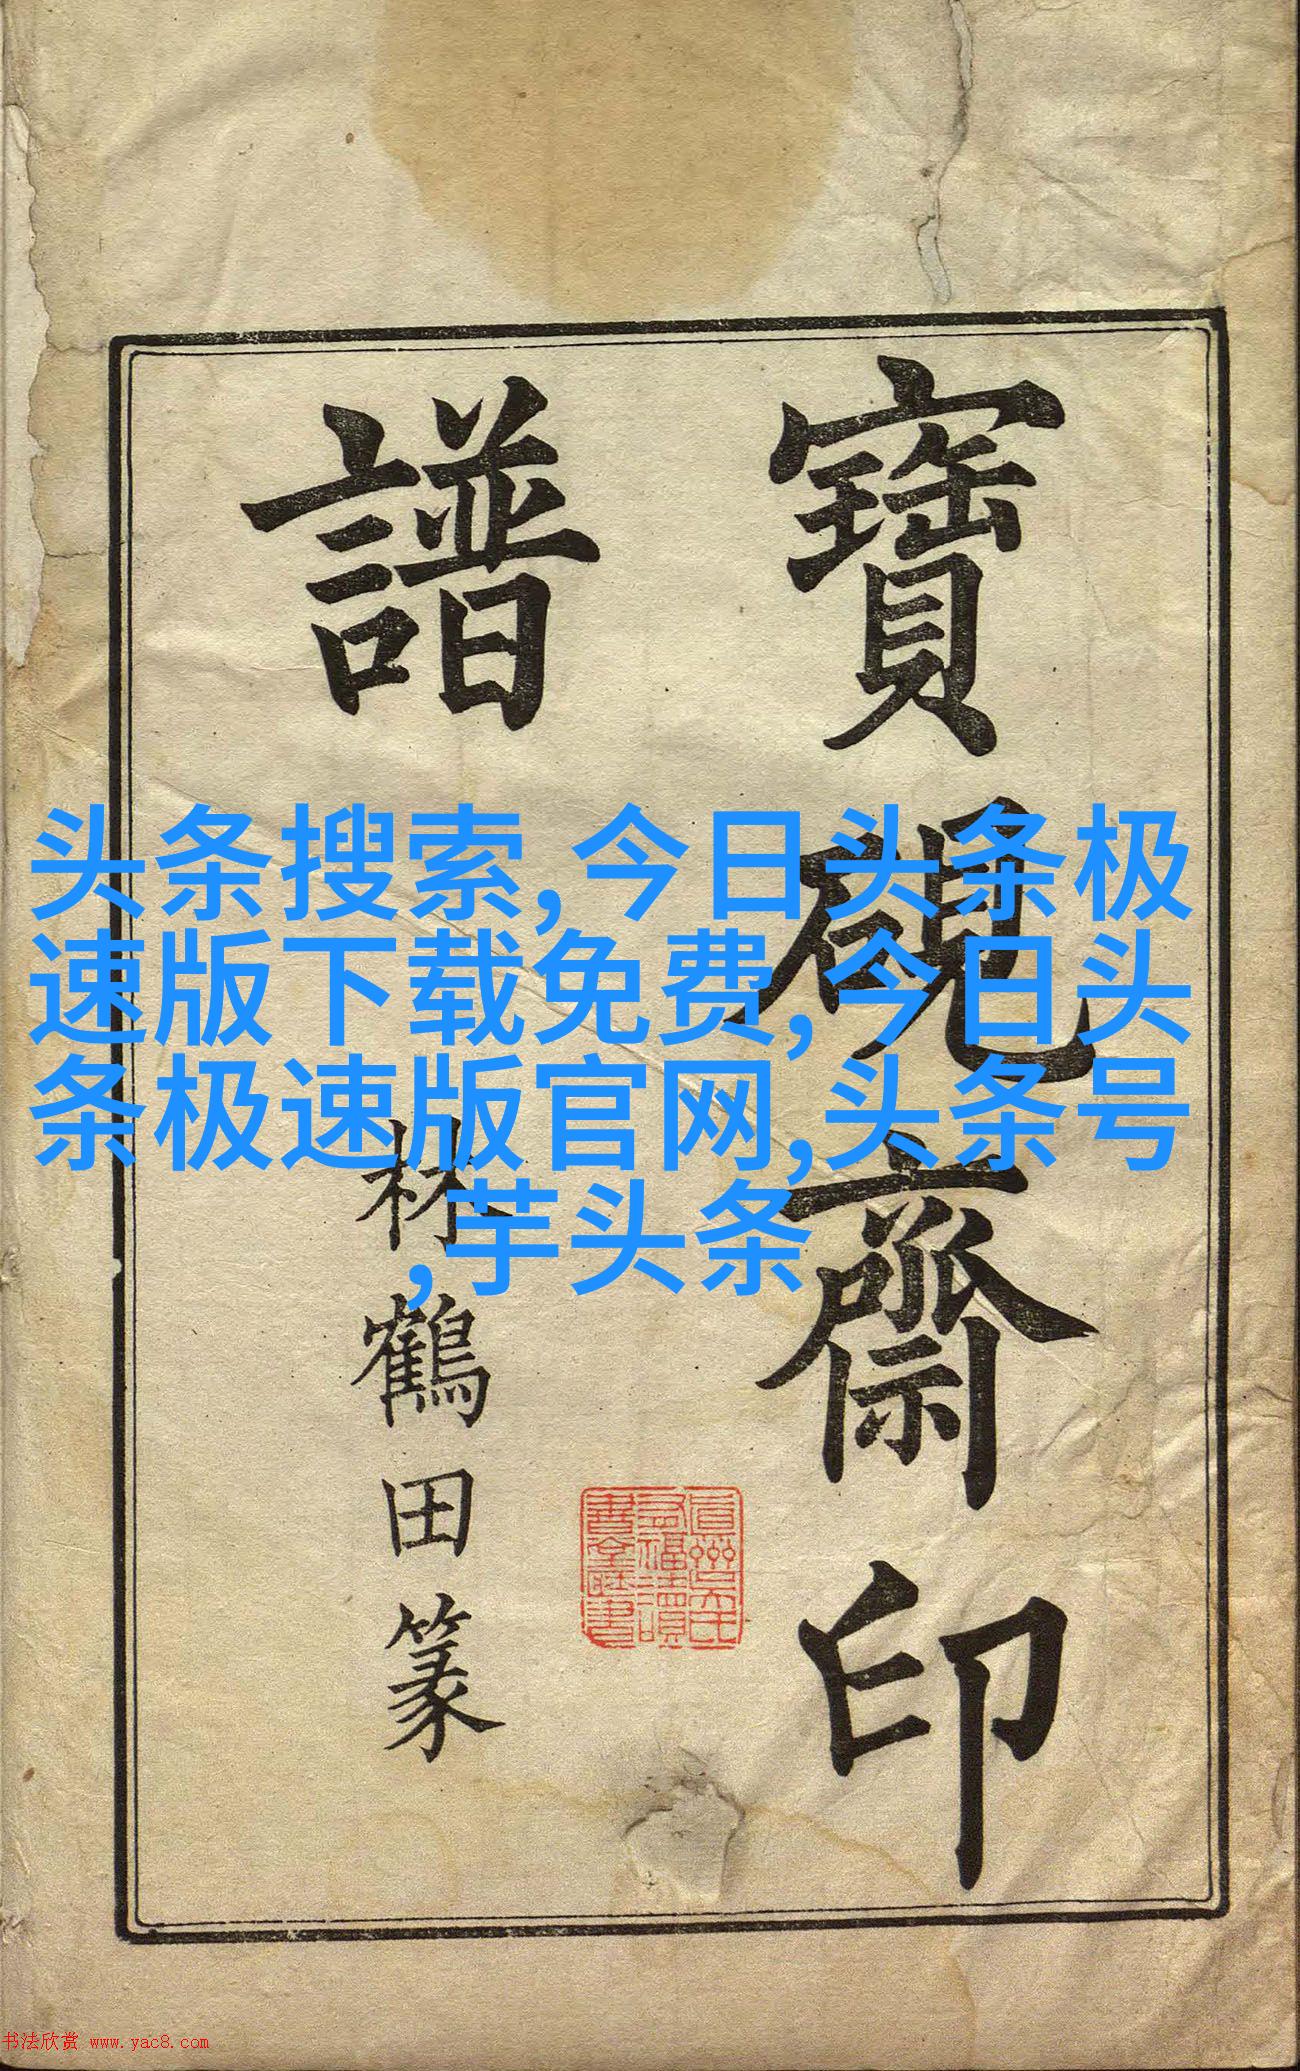 寶硯齋印
譜
林鶴田篆
真州吳氏
有福讀
書堂藏書
头条搜索,今日头条极
速版下载免费,今日头
条极速版官网,头条号
,芋头条
书法欣赏 www.yac8.com